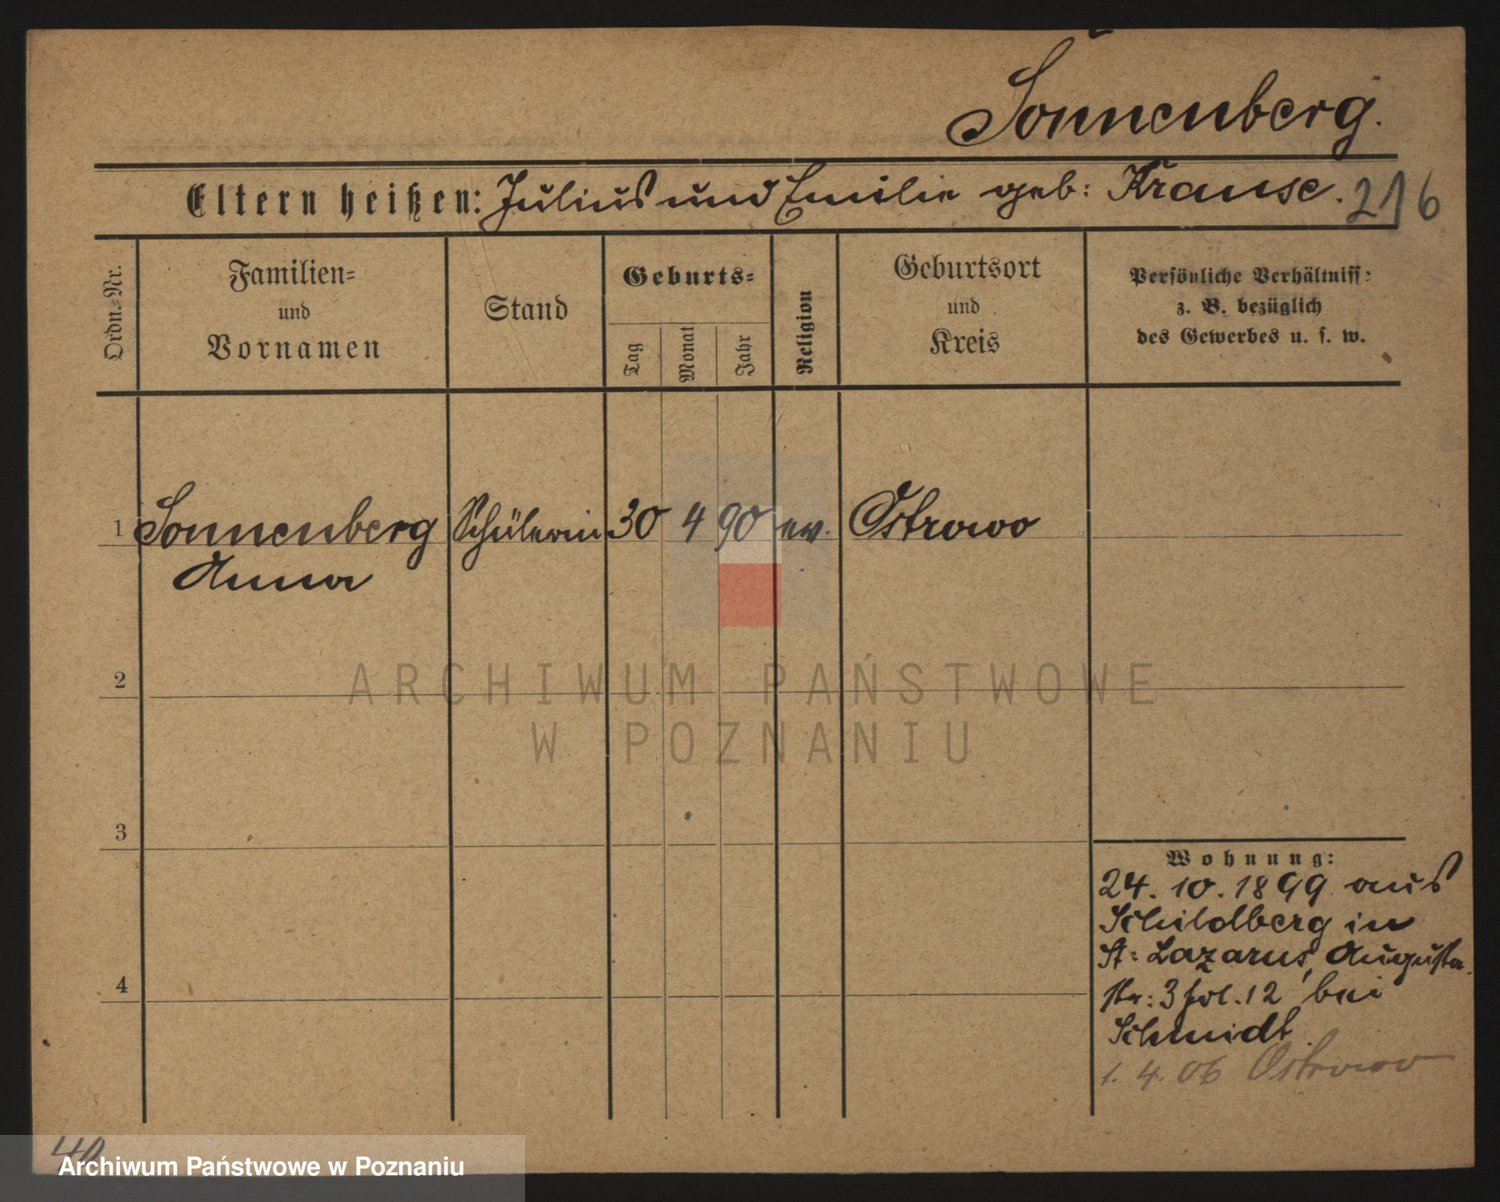 Sonnenberg.
Eltern heißen: Julius und Emilie geb: Krause. 216
Ordn.-Nr.
Familien-
und
Vornamen
Stand
Geburts-
Tag
Monat
Jahr
Religion
Geburtsort
und
Kreis
Persönliche Verhältniss-
z. B. bezüglich
des Gewerbes u. s. w.
1 Sonnenberg Schülerin 30 4 90 ev. Ostrowo
Anna
2
ARCHIWUM PAŃSTWOWE
W POZNANIU
3
Wohnung:
24. 10. 1899 aus
Schildberg in
St: Lazarus, Augusta
4
str: 3 fol. 12 bei
Schmidt
1. 4. 06 Ostrowo
40
Archiwum Państwowe w Poznaniu